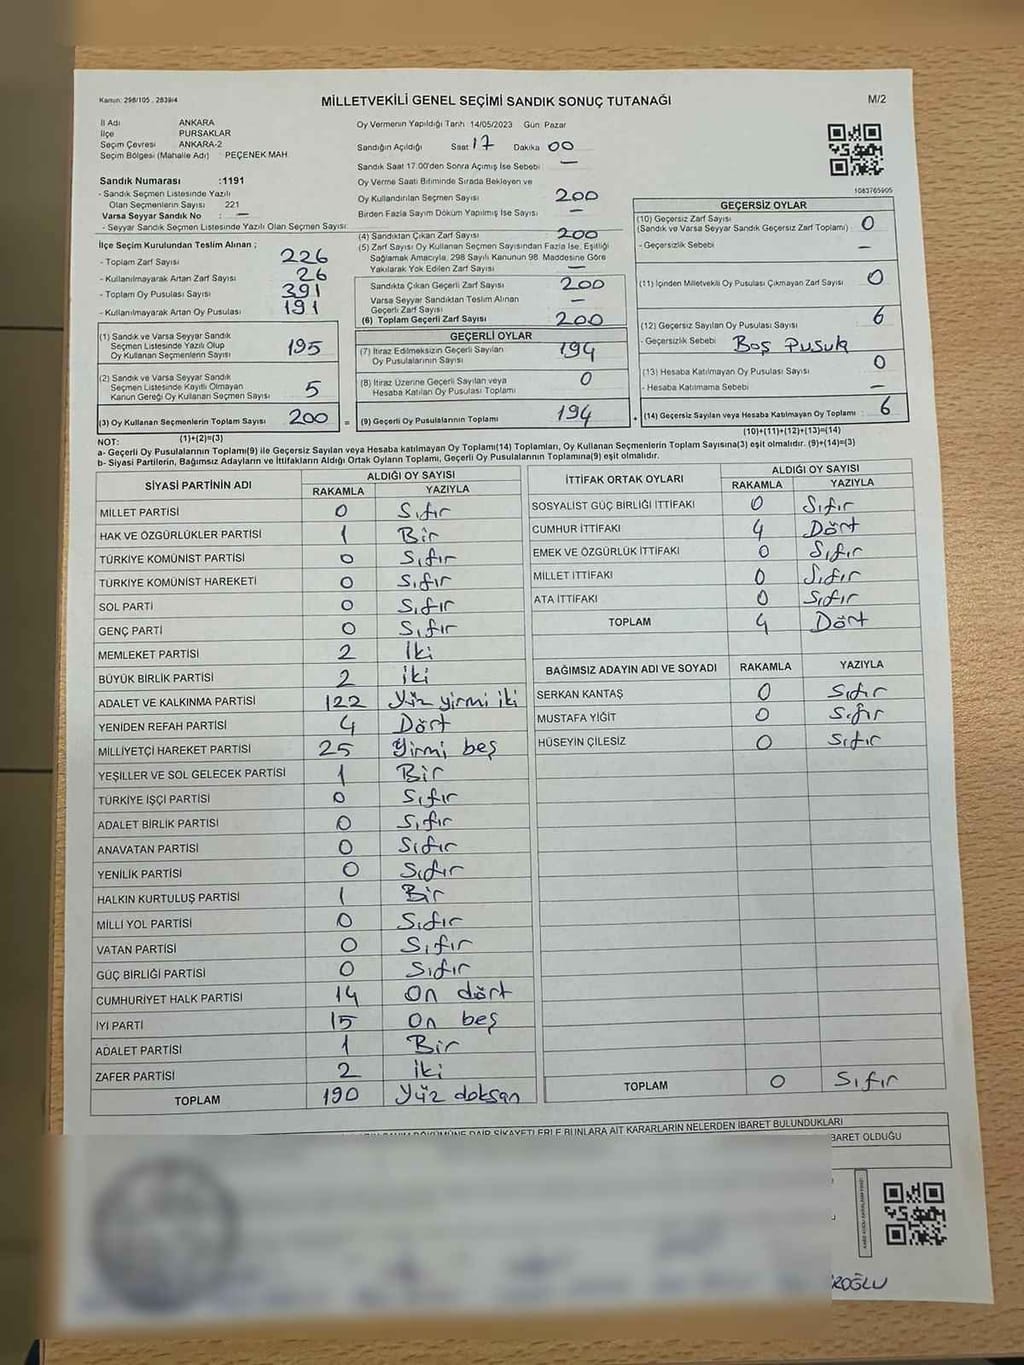 Kanun: 298/105 , 2839/4
MİLLETVEKİLİ GENEL SEÇİMİ SANDIK SONUÇ TUTANAĞI
M/2
İl Adı ANKARA
İlçe PURSAKLAR
Seçim Çevresi ANKARA-2
Seçim Bölgesi (Mahalle Adı) PEÇENEK MAH.
Sandık Numarası :1191
- Sandık Seçmen Listesinde Yazılı
Olan Seçmenlerin Sayısı 221
Varsa Seyyar Sandık No : —
- Seyyar Sandık Seçmen Listesinde Yazılı Olan Seçmen Sayısı:
İlçe Seçim Kurulundan Teslim Alınan ;
- Toplam Zarf Sayısı 226
- Kullanılmayarak Artan Zarf Sayısı 26
- Toplam Oy Pusulası Sayısı 391
- Kullanılmayarak Artan Oy Pusulası 191
(1) Sandık ve Varsa Seyyar Sandık
Seçmen Listesinde Yazılı Olup
Oy Kullanan Seçmenlerin Sayısı 195
(2) Sandık ve Varsa Seyyar Sandık
Seçmen Listesinde Kayıtlı Olmayan
Kanun Gereği Oy Kullanan Seçmen Sayısı 5
(3) Oy Kullanan Seçmenlerin Toplam Sayısı 200 =
(1)+(2)=(3)
Oy Vermenin Yapıldığı Tarih 14/05/2023 Gün: Pazar
Sandığın Açıldığı Saat 17 Dakika 00
Sandık Saat 17.00'den Sonra Açımış İse Sebebi —
Oy Verme Saati Bitiminde Sırada Bekleyen ve
Oy Kullandırılan Seçmen Sayısı 200
Birden Fazla Sayım Döküm Yapılmış İse Sayısı —
(4) Sandıktan Çıkan Zarf Sayısı 200
(5) Zarf Sayısı Oy Kullanan Seçmen Sayısından Fazla İse, Eşitliği
Sağlamak Amacıyla, 298 Sayılı Kanunun 98. Maddesine Göre
Yakılarak Yok Edilen Zarf Sayısı —
Sandıkta Çıkan Geçerli Zarf Sayısı 200
Varsa Seyyar Sandıktan Teslim Alınan
Geçerli Zarf Sayısı —
(6) Toplam Geçerli Zarf Sayısı 200
GEÇERLİ OYLAR
(7) İtiraz Edilmeksizin Geçerli Sayılan
Oy Pusulalarının Sayısı 194
(8) İtiraz Üzerine Geçerli Sayılan veya
Hesaba Katılan Oy Pusulası Toplamı 0
(9) Geçerli Oy Pusulalarının Toplamı 194 +
1083765905
GEÇERSİZ OYLAR
(10) Geçersiz Zarf Sayısı
(Sandık ve Varsa Seyyar Sandık Geçersiz Zarf Toplamı) 0
- Geçersizlik Sebebi —
(11) İçinden Milletvekili Oy Pusulası Çıkmayan Zarf Sayısı 0
(12) Geçersiz Sayılan Oy Pusulası Sayısı 6
- Geçersizlik Sebebi Boş Pusula
(13) Hesaba Katılmayan Oy Pusulası Sayısı 0
- Hesaba Katılmama Sebebi —
(14) Geçersiz Sayılan veya Hesaba Katılmayan Oy Toplamı 6
(10)+(11)+(12)+(13)=(14)
NOT:
a- Geçerli Oy Pusulalarının Toplamı(9) ile Geçersiz Sayılan veya Hesaba katılmayan Oy Toplamı(14) Toplamları, Oy Kullanan Seçmenlerin Toplam Sayısına(3) eşit olmalıdır. (9)+(14)=(3)
b- Siyasi Partilerin, Bağımsız Adayların ve İttifakların Aldığı Ortak Oyların Toplamı, Geçerli Oy Pusulalarının Toplamına(9) eşit olmalıdır.
SİYASİ PARTİNİN ADI ALDIĞI OY SAYISI
RAKAMLA YAZIYLA
MİLLET PARTİSİ 0 Sıfır
HAK VE ÖZGÜRLÜKLER PARTİSİ 1 Bir
TÜRKİYE KOMÜNİST PARTİSİ 0 Sıfır
TÜRKİYE KOMÜNİST HAREKETİ 0 Sıfır
SOL PARTİ 0 Sıfır
GENÇ PARTİ 0 Sıfır
MEMLEKET PARTİSİ 2 İki
BÜYÜK BİRLİK PARTİSİ 2 iki
ADALET VE KALKINMA PARTİSİ 122 Yüz yirmi iki
YENİDEN REFAH PARTİSİ 4 Dört
MİLLİYETÇİ HAREKET PARTİSİ 25 Yirmi beş
YEŞİLLER VE SOL GELECEK PARTİSİ 1 Bir
TÜRKİYE İŞÇİ PARTİSİ 0 Sıfır
ADALET BİRLİK PARTİSİ 0 Sıfır
ANAVATAN PARTİSİ 0 Sıfır
YENİLİK PARTİSİ 0 Sıfır
HALKIN KURTULUŞ PARTİSİ 1 Bir
MİLLİ YOL PARTİSİ 0 Sıfır
VATAN PARTİSİ 0 Sıfır
GÜÇ BİRLİĞİ PARTİSİ 0 Sıfır
CUMHURİYET HALK PARTİSİ 14 On dört
İYİ PARTİ 15 On beş
ADALET PARTİSİ 1 Bir
ZAFER PARTİSİ 2 iki
TOPLAM 190 Yüz doksan
İTTİFAK ORTAK OYLARI ALDIĞI OY SAYISI
RAKAMLA YAZIYLA
SOSYALİST GÜÇ BİRLİĞİ İTTİFAKI 0 Sıfır
CUMHUR İTTİFAKI 4 Dört
EMEK VE ÖZGÜRLÜK İTTİFAKI 0 Sıfır
MİLLET İTTİFAKI 0 Sıfır
ATA İTTİFAKI 0 Sıfır
TOPLAM 4 Dört
BAĞIMSIZ ADAYIN ADI VE SOYADI RAKAMLA YAZIYLA
SERKAN KANTAŞ 0 Sıfır
MUSTAFA YİĞİT 0 Sıfır
HÜSEYİN ÇİLESİZ 0 Sıfır
TOPLAM 0 Sıfır
DÖKÜMÜNE DAİR ŞİKAYETLERLE BUNLARA AİT KARARLARIN NELERDEN İBARET BULUNDUKLARI
BARET OLDUĞU
ROĞLU